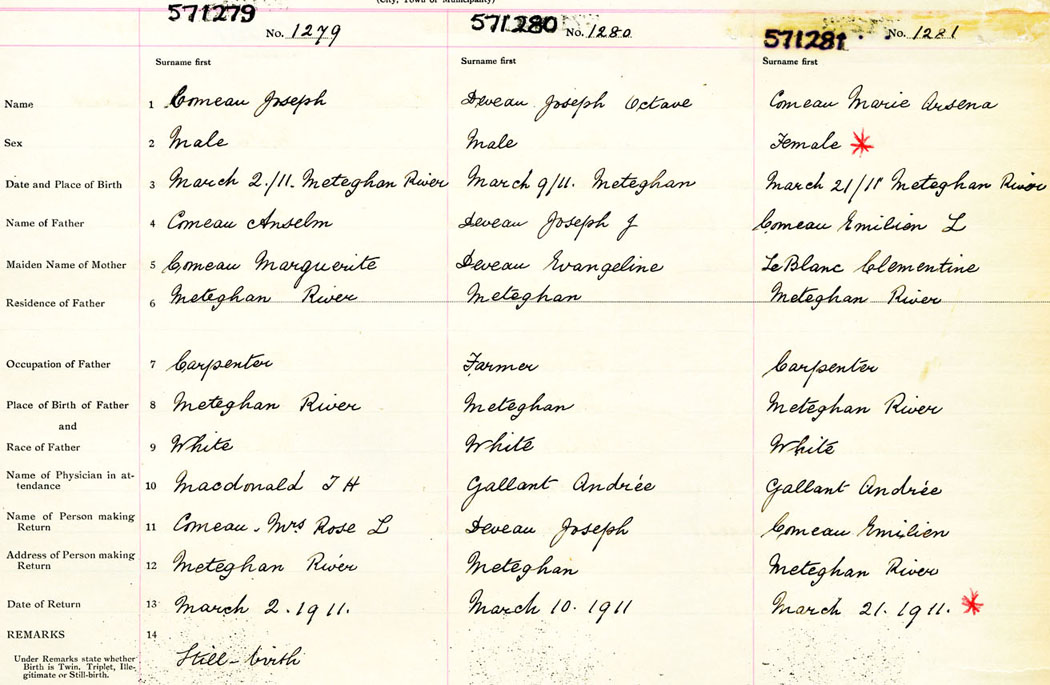 (City, Town or Municipality)
571279 No. 1279 571280 No. 1280 571281 No. 1281
Surname first Surname first Surname first
Name 1 Comeau Joseph Deveau Joseph Octave Comeau Marie Arsena
Sex 2 Male Male Female
Date and Place of Birth 3 March 2./11. Meteghan River March 9/11. Meteghan March 21/11 Meteghan River
Name of Father 4 Comeau Anselm Deveau Joseph J Comeau Emilien L
Maiden Name of Mother 5 Comeau Marguerite Deveau Evangeline LeBlanc Clementine
Residence of Father 6 Meteghan River Meteghan Meteghan River
Occupation of Father 7 Carpenter Farmer Carpenter
Place of Birth of Father 8 Meteghan River Meteghan Meteghan River
and
Race of Father 9 White White White
Name of Physician in at-
tendance 10 Macdonald T H Gallant Andrée Gallant Andrée
Name of Person making
Return 11 Comeau. Mrs Rose L Deveau Joseph Comeau Emilien
Address of Person making
Return 12 Meteghan River Meteghan Meteghan River
Date of Return 13 March 2. 1911. March 10. 1911 March 21. 1911.
REMARKS 14
Under Remarks state whether
Birth is Twin, Triplet, Ille-
gitimate or Still-birth.
Still-birth